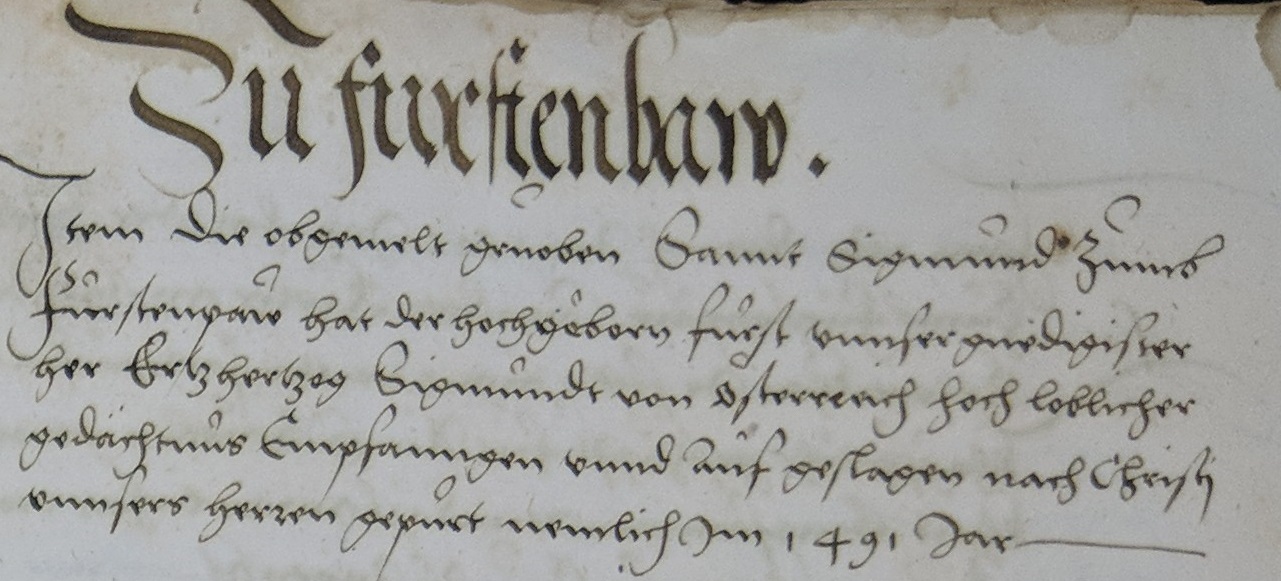 Zu furstenbaw.
Item die obgemelt grueben Sannt Sigmund Zumb
Fürstenpaw hat der hochgeborn fürst unnser gnedigister
her Ertzhertzog Sigmundt von Osterreich hoch loblicher
gedächtnus Empfanngen unnd auf geslagen nach Christj
unnsers herren gepurt nemlich Im 1491 Jar